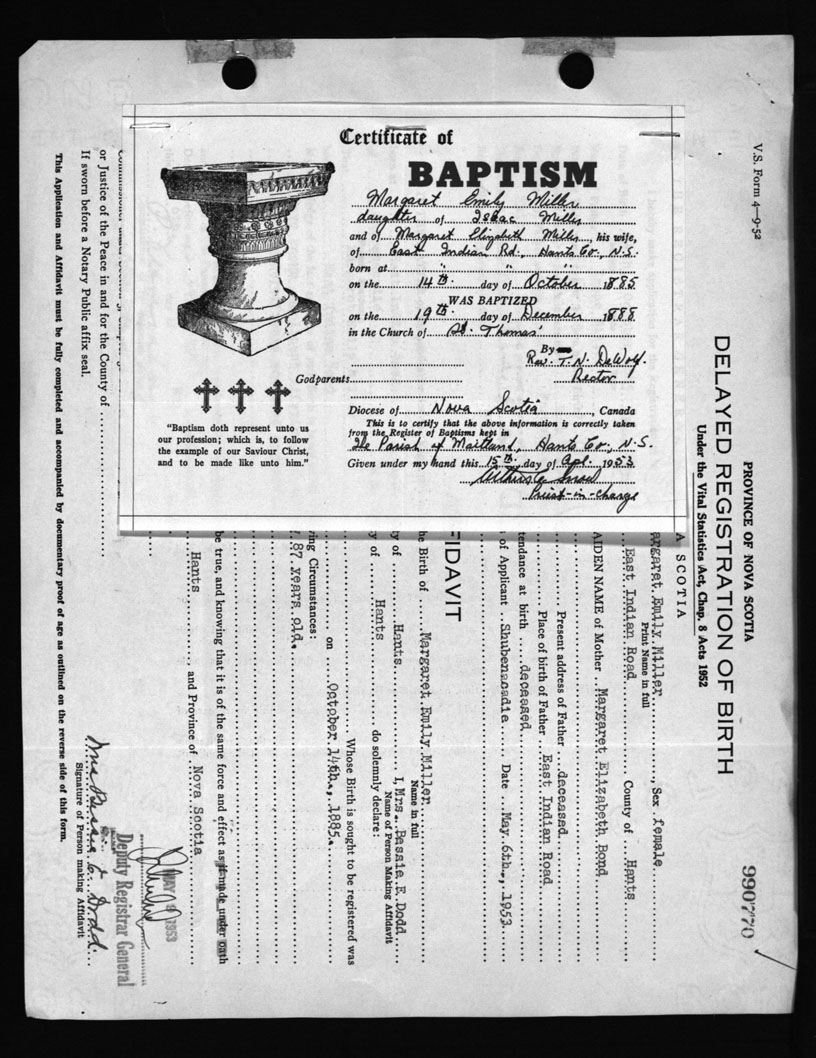 Certificate of
BAPTISM
Margaret Emily Miller
daughter of Isaac Miller
and of Margaret Elizabeth Miller, his wife,
of East Indian Rd., Hants Co., N.S.
born at " " "
on the 14th. day of October 1885
WAS BAPTIZED
on the 19th. day of December 1888
in the Church of St. Thomas'
By Rev. T. N. DeWolf.
Rector
Godparents
Diocese of Nova Scotia, Canada
This is to certify that the above information is correctly taken
from the Register of Baptisms kept in
the Parish of Maitland, Hants Co., N.S.
Given under my hand this 15th. day of Apl. 1953
Priest-in-charge
"Baptism doth represent unto us
our profession; which is, to follow
the example of our Saviour Christ,
and to be made like unto him."
V.S. Form 4-9-52
PROVINCE OF NOVA SCOTIA
DELAYED REGISTRATION OF BIRTH
Under the Vital Statistics Act, Chap. 8 Acts 1952
990770
A SCOTIA
argaret Emily Miller, Sex female
Print Name in full
East Indian Road County of Hants
AIDEN NAME of Mother Margaret Elizabeth Bond
Present address of Father deceased
Place of birth of Father East Indian Road
tendance at birth deceased
of Applicant Shubenacadie Date May 6th., 1953
FIDAVIT
he Birth of Margaret Emily Miller
Name in full
ty of Hants I, Mrs. Bessie E. Dodd
Name of Person Making Affidavit
y of Hants do solemnly declare:
Whose Birth is sought to be registered was
on October 14th., 1885.
ing Circumstances:
87 years old.
be true, and knowing that it is of the same force and effect as if made under oath
Hants and Province of Nova Scotia
MAY 1953
Deputy Registrar General
Mrs Bessie E. Dodd.
Signature of Person making Affidavit
or Justice of the Peace in and for the County of
If sworn before a Notary Public affix seal.
This Application and Affidavit must be fully completed and accompanied by documentary proof of age as outlined on the reverse side of this form.